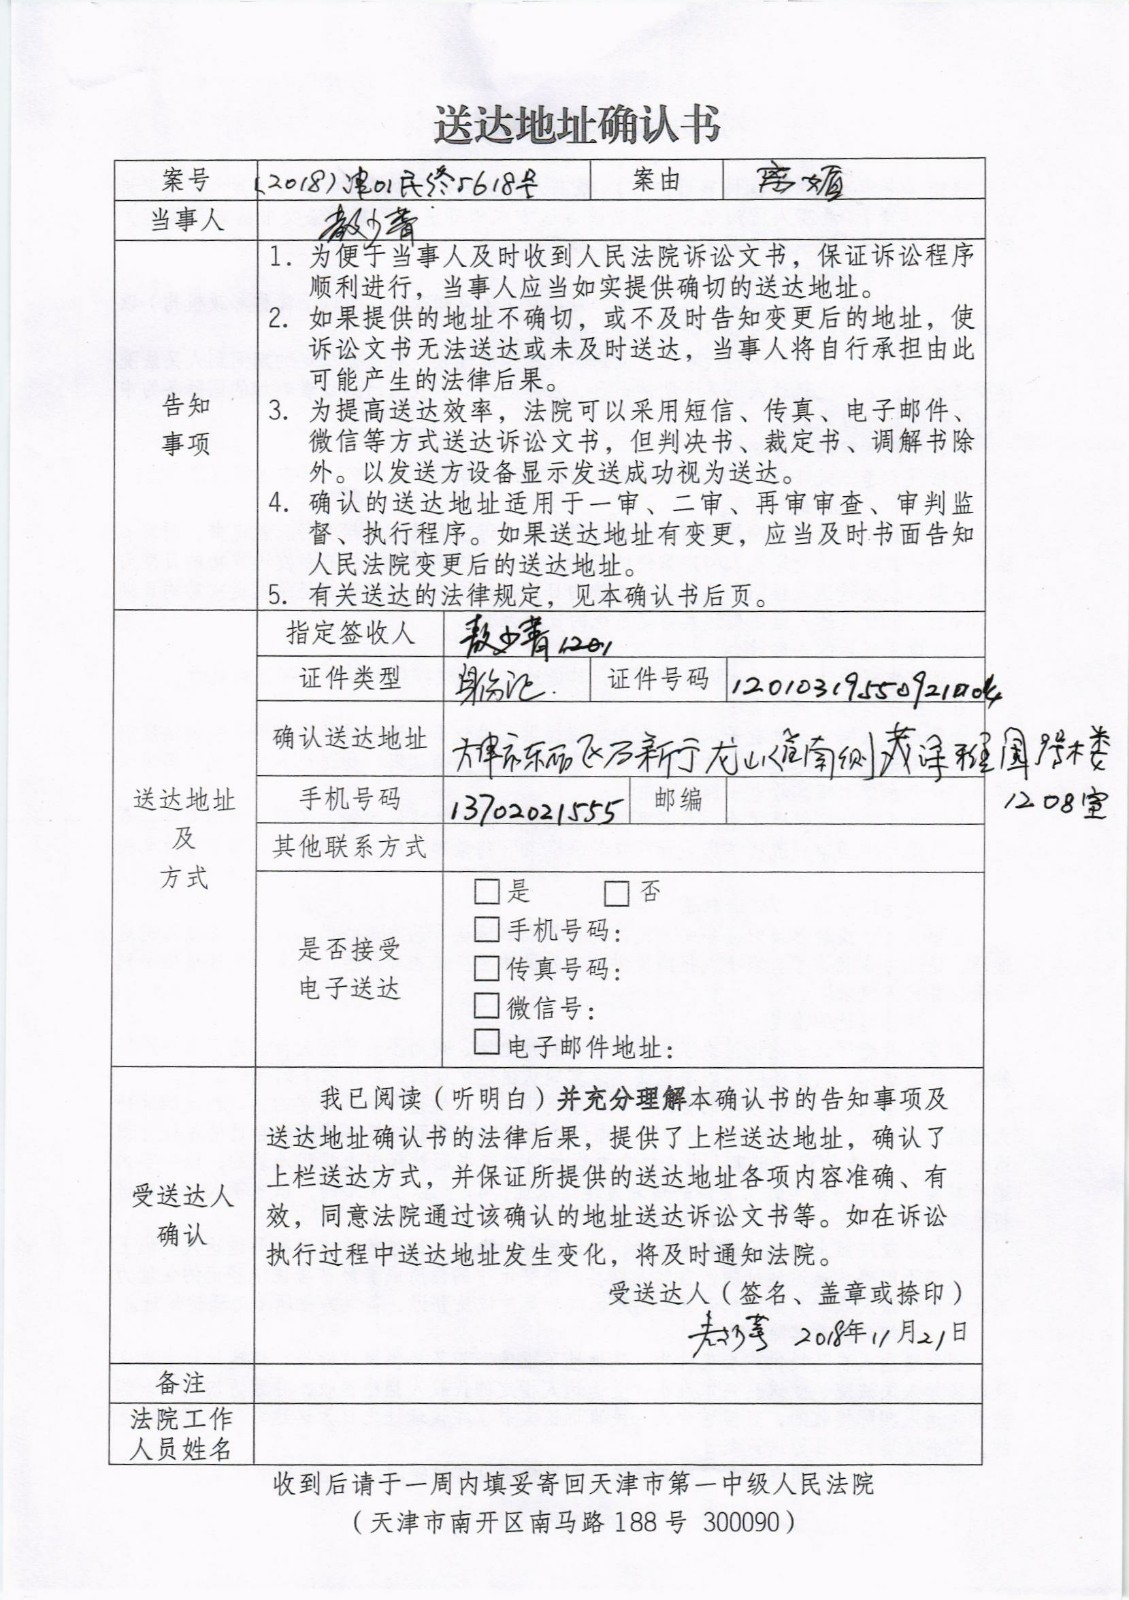 送达地址确认书
案号 (2018)津01民终5618号 案由
当事人
告知
事项
1. 为便于当事人及时收到人民法院诉讼文书，保证诉讼程序
顺利进行，当事人应当如实提供确切的送达地址。
2. 如果提供的地址不确切，或不及时告知变更后的地址，使
诉讼文书无法送达或未及时送达，当事人将自行承担由此
可能产生的法律后果。
3. 为提高送达效率，法院可以采用短信、传真、电子邮件、
微信等方式送达诉讼文书，但判决书、裁定书、调解书除
外。以发送方设备显示发送成功视为送达。
4. 确认的送达地址适用于一审、二审、再审审查、审判监
督、执行程序。如果送达地址有变更，应当及时书面告知
人民法院变更后的送达地址。
5. 有关送达的法律规定，见本确认书后页。
送达地址
及
方式
指定签收人
证件类型 身份证 证件号码
确认送达地址 天津市东丽 新 龙山道南侧 雅园 号楼
1208室
手机号码 13702021555 邮编
其他联系方式
是否接受
电子送达
□是 □否
□手机号码：
□传真号码：
□微信号：
□电子邮件地址：
受送达人
确认
我已阅读（听明白）并充分理解本确认书的告知事项及
送达地址确认书的法律后果，提供了上栏送达地址，确认了
上栏送达方式，并保证所提供的送达地址各项内容准确、有
效，同意法院通过该确认的地址送达诉讼文书等。如在诉讼
执行过程中送达地址发生变化，将及时通知法院。
受送达人（签名、盖章或捺印）
2018年11月21日
备注
法院工作
人员姓名
收到后请于一周内填妥寄回天津市第一中级人民法院
（天津市南开区南马路188号 300090）